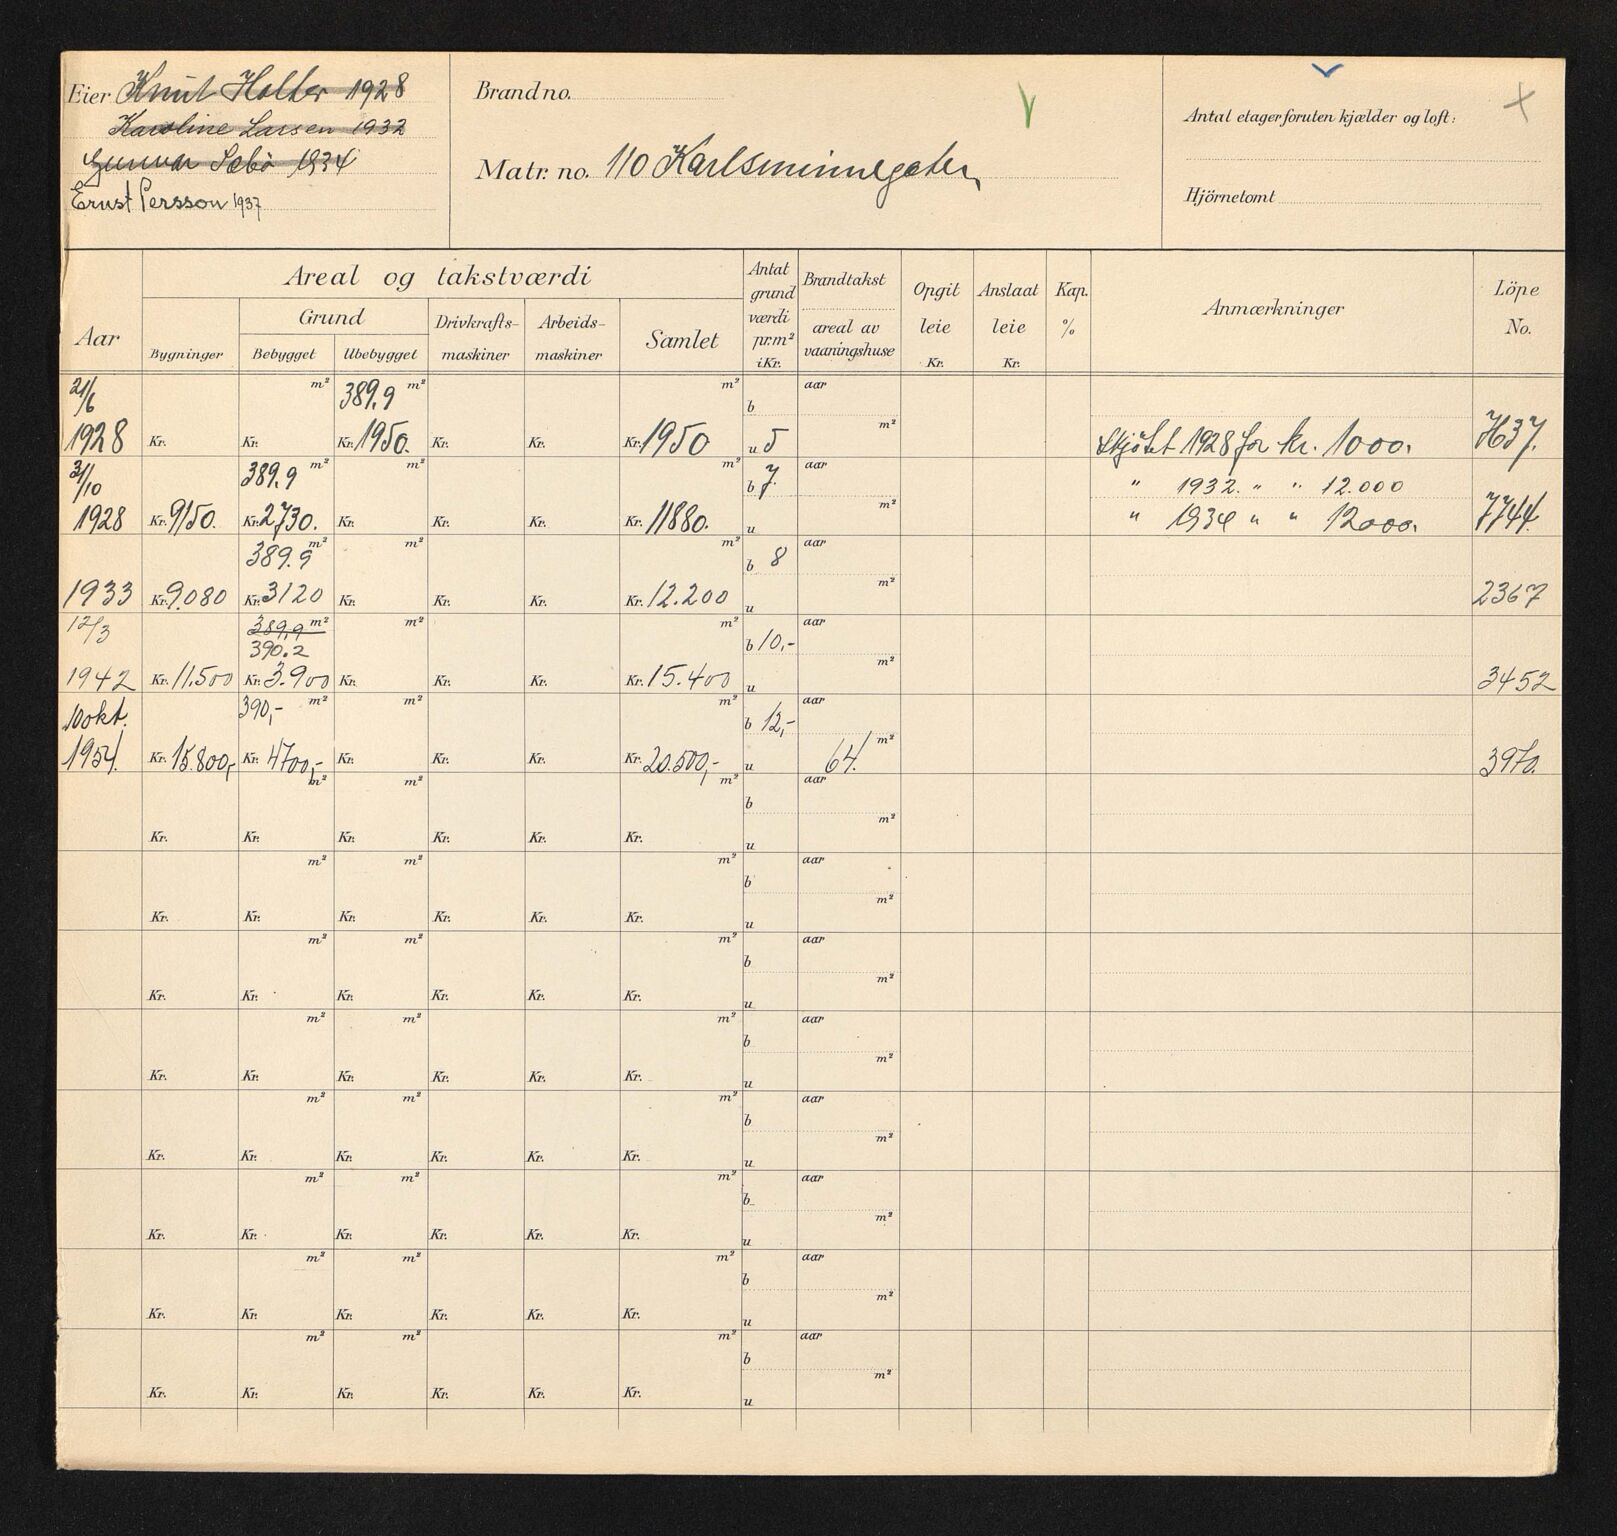 Eier Knut Holter 1928
Karoline Larsen 1932
Gunnar Sæbø 1934
Ernst Persson 1937
Brand no.
Matr. no. 110 Karlsminnegaten
Antal etager foruten kjælder og loft:
Hjörnetomt
Aar
Areal og takstværdi
Bygninger
Grund
Bebygget Ubebygget
Drivkrafts-
maskiner
Arbeids-
maskiner
Samlet
Antat
grund
værdi
pr.m²
i Kr.
Brandtakst
areal av
vaaningshuse
Opgit
leie
Kr.
Anslaat
leie
Kr.
Kap.
%
Anmærkninger
Löpe
No.
21/6 m² 389,9 m² m² b aar
1928 Kr. Kr. Kr. 1950. Kr. Kr. Kr. 1950 u 5 m² Skjøtet 1928 for kr. 1000. 7437.
3/10 389,9 m² m² m² b 7. aar " 1932. " " 12.000
1928 Kr. 9150. Kr. 2730. Kr. Kr. Kr. Kr. 11880. u m² " 1934 " " 12000. 7744.
389.9 m² m² m² b 8 aar
1933 Kr. 9.080 Kr. 3120 Kr. Kr. Kr. Kr. 12.200 u m² 2367
12/3 389,9 m² m² m² b 10,- aar
390.2
1942 Kr. 11.500 Kr. 3.900 Kr. Kr. Kr. Kr. 15.400 u m² 3452
10 okt. 390,- m² m² m² b 12,- aar
1954. Kr. 15.800,- Kr. 4700,- Kr. Kr. Kr. Kr. 20.500,- u 64. m² 3970.
m² m² m² b aar
Kr. Kr. Kr. Kr. Kr. Kr. u m²
m² m² m² b aar
Kr. Kr. Kr. Kr. Kr. Kr. u m²
m² m² m² b aar
Kr. Kr. Kr. Kr. Kr. Kr. u m²
m² m² m² b aar
Kr. Kr. Kr. Kr. Kr. Kr. u m²
m² m² m² b aar
Kr. Kr. Kr. Kr. Kr. Kr. u m²
m² m² m² b aar
Kr. Kr. Kr. Kr. Kr. Kr. u m²
m² m² m² b aar
Kr. Kr. Kr. Kr. Kr. Kr. u m²
m² m² m² b aar
Kr. Kr. Kr. Kr. Kr. Kr. u m²